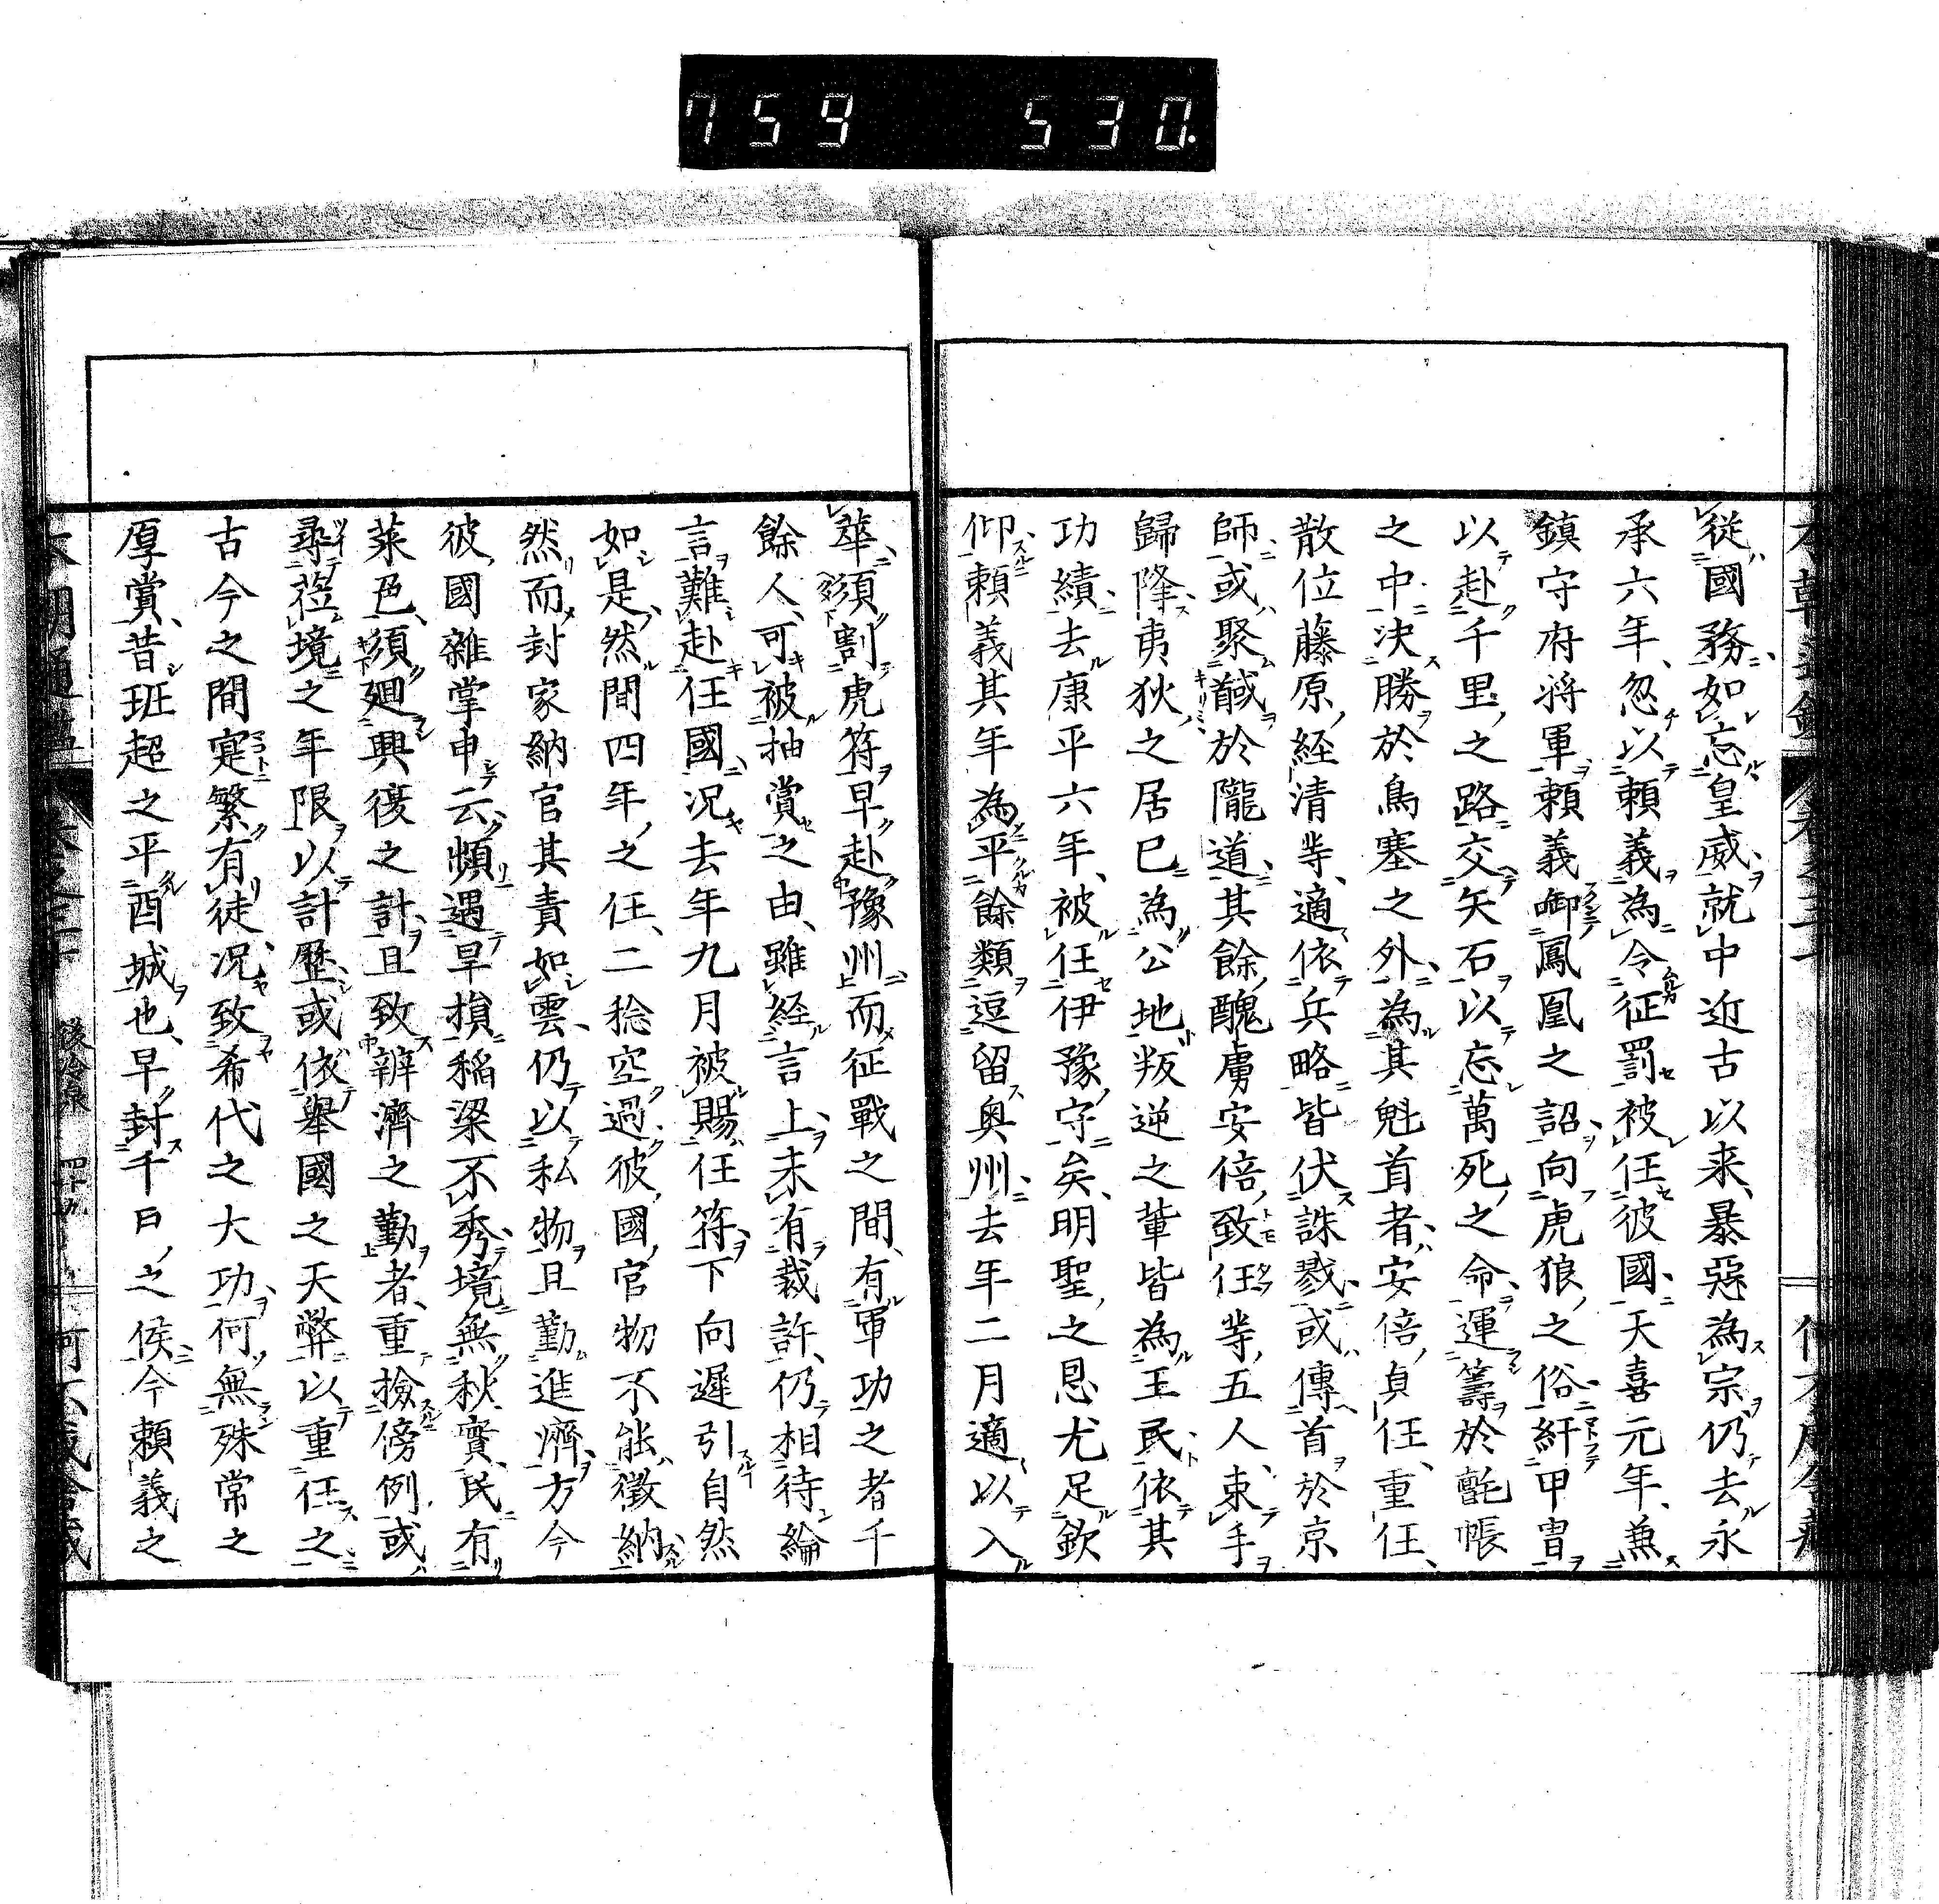 759 530.
従國務如忘皇威就中近古以来暴惡為宗仍去永
承六年忽以頼義為令征罰被任彼國天喜元年兼
鎮守府將軍頼義御鳳凰之詔向虎狼之俗紆甲冑
以赴千里之路交矢石以忘萬死之命運籌於氈帳
之中決勝於鳥塞之外為其魁首者安倍貞任重任
散位藤原経清等適依兵略皆伏誅戮或傳首於京
師或聚馘於隴道其餘醜虜安倍致任等五人束手
歸降夷狄之居已為公地叛逆之輩皆為王民依其
功績去康平六年被任伊豫守矣明聖之恩尤足欽
仰頼義其年為平餘類逗留奥州去年二月適以入
華須割虎符早赴豫州而征戰之間有軍功之者千
餘人可被抽賞之由雖経言上未有裁許仍相待綸
言難赴任國况去年九月被賜任符下向遲引自然
如是然間四年之任二稔空過彼國官物不能徴納
然而封家納官其責如雲仍以私物且勤進濟方今
彼國雜掌申云頻遇旱損稲粱不秀境無秋實民有
菜色須廻興復之計且致辨濟之勤者重撿傍例或
尋莅境之年限以計歴或依舉國之天弊以重任之
古今之間寔繁有徒况致希代之大功何無殊常之
厚賞昔班超之平酉城也早封千日之侯今頼義之
後冷泉 四十九